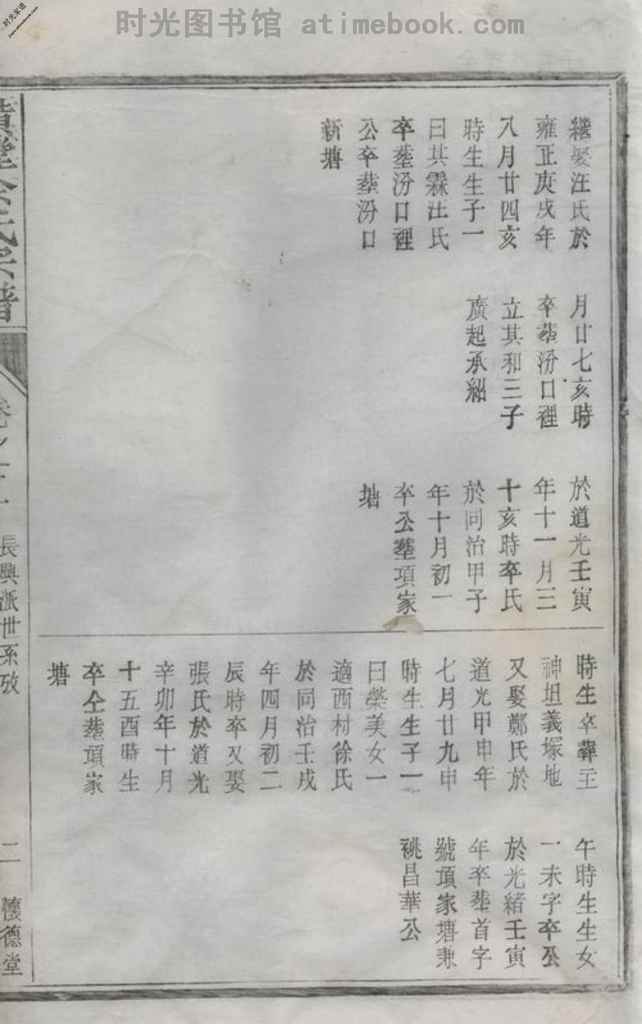 时光图书馆 atimebook.com
繼娶汪氏於
雍正庚戌年
八月廿四亥
時生生子一
曰其霖汪氏
卒塟汾口裡
公卒塟汾口
新塘
月廿七亥時
卒塟汾口裡
立其和三子
廣起承紹
於道光壬寅
年十一月三
十亥時卒氏
於同治甲子
年十月初一
卒公塟項家
塘
時生卒葬王
神坦義塚地
又娶鄭氏於
道光甲申年
七月廿九申
時生生子一
曰榮美女一
適西村徐氏
於同治壬戌
年四月初二
辰時卒又娶
張氏於道光
辛卯年十月
十五酉時生
卒仝塟項家
塘
午時生生女
一未字卒公
於光緒壬寅
年卒塟首字
號項家塘兼
祧昌華公
氏宗譜
長興派世系攷
二
懷德堂